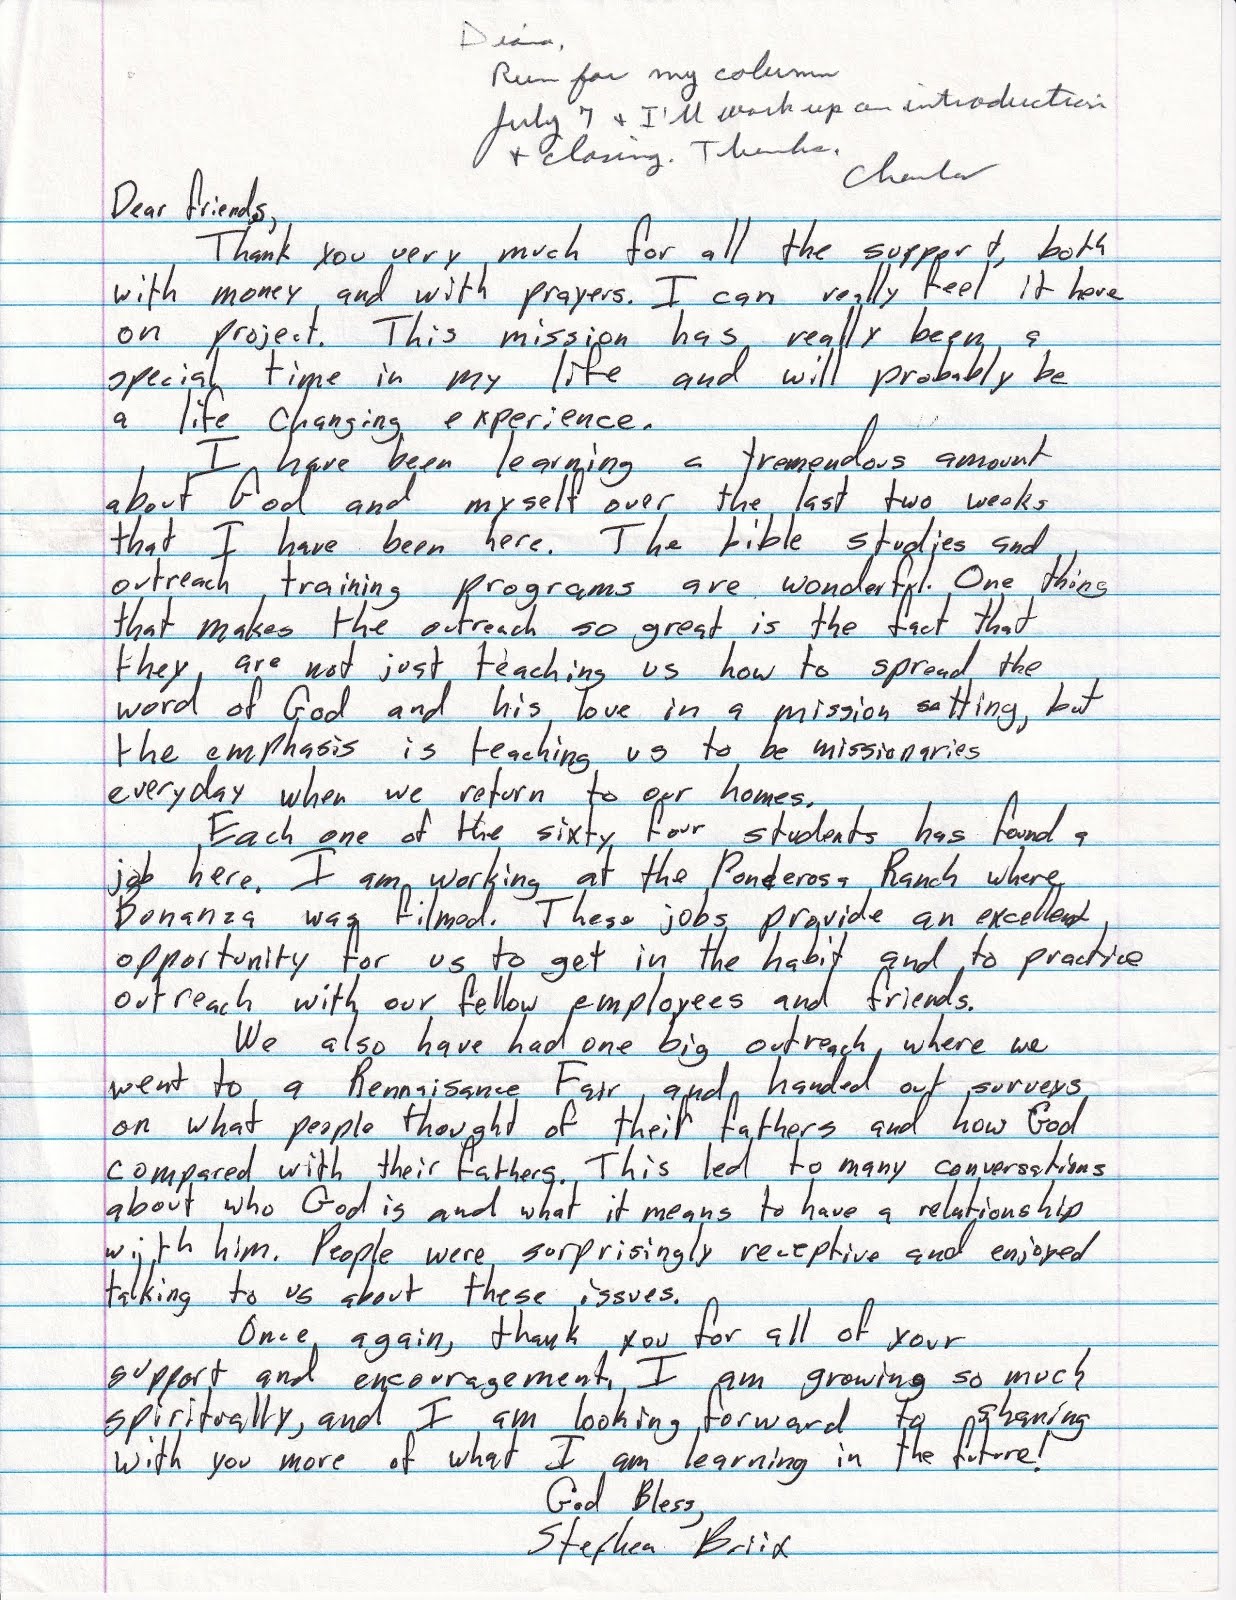 Diana,
Run for my column
July 7 & I'll work up an introduction
& closing. Thanks.
Dear friends,
Thank you very much for all the support, both
with money and with prayers. I can really feel it here
on project. This mission has really been a
special time in my life and will probably be
a life changing experience.
I have been learning a tremendous amount
about God and myself over the last two weeks
that I have been here. The bible studies and
outreach training programs are wonderful. One thing
that makes the outreach so great is the fact that
they are not just teaching us how to spread the
word of God and his love in a mission setting, but
the emphasis is teaching us to be missionaries
everyday when we return to our homes.
Each one of the sixty four students has found a
job here. I am working at the Ponderosa Ranch where
Bonanza was filmed. These jobs provide an excellent
opportunity for us to get in the habit and to practice
outreach with our fellow employees and friends.
We also have had one big outreach where we
went to a Rennaisance Fair and handed out surveys
on what people thought of their fathers and how God
compared with their fathers. This led to many conversations
about who God is and what it means to have a relationship
with him. People were surprisingly receptive and enjoyed
talking to us about these issues.
Once again, thank you for all of your
support and encouragement. I am growing so much
spiritually, and I am looking forward to sharing
with you more of what I am learning in the future!
God Bless,
Stephen Briix